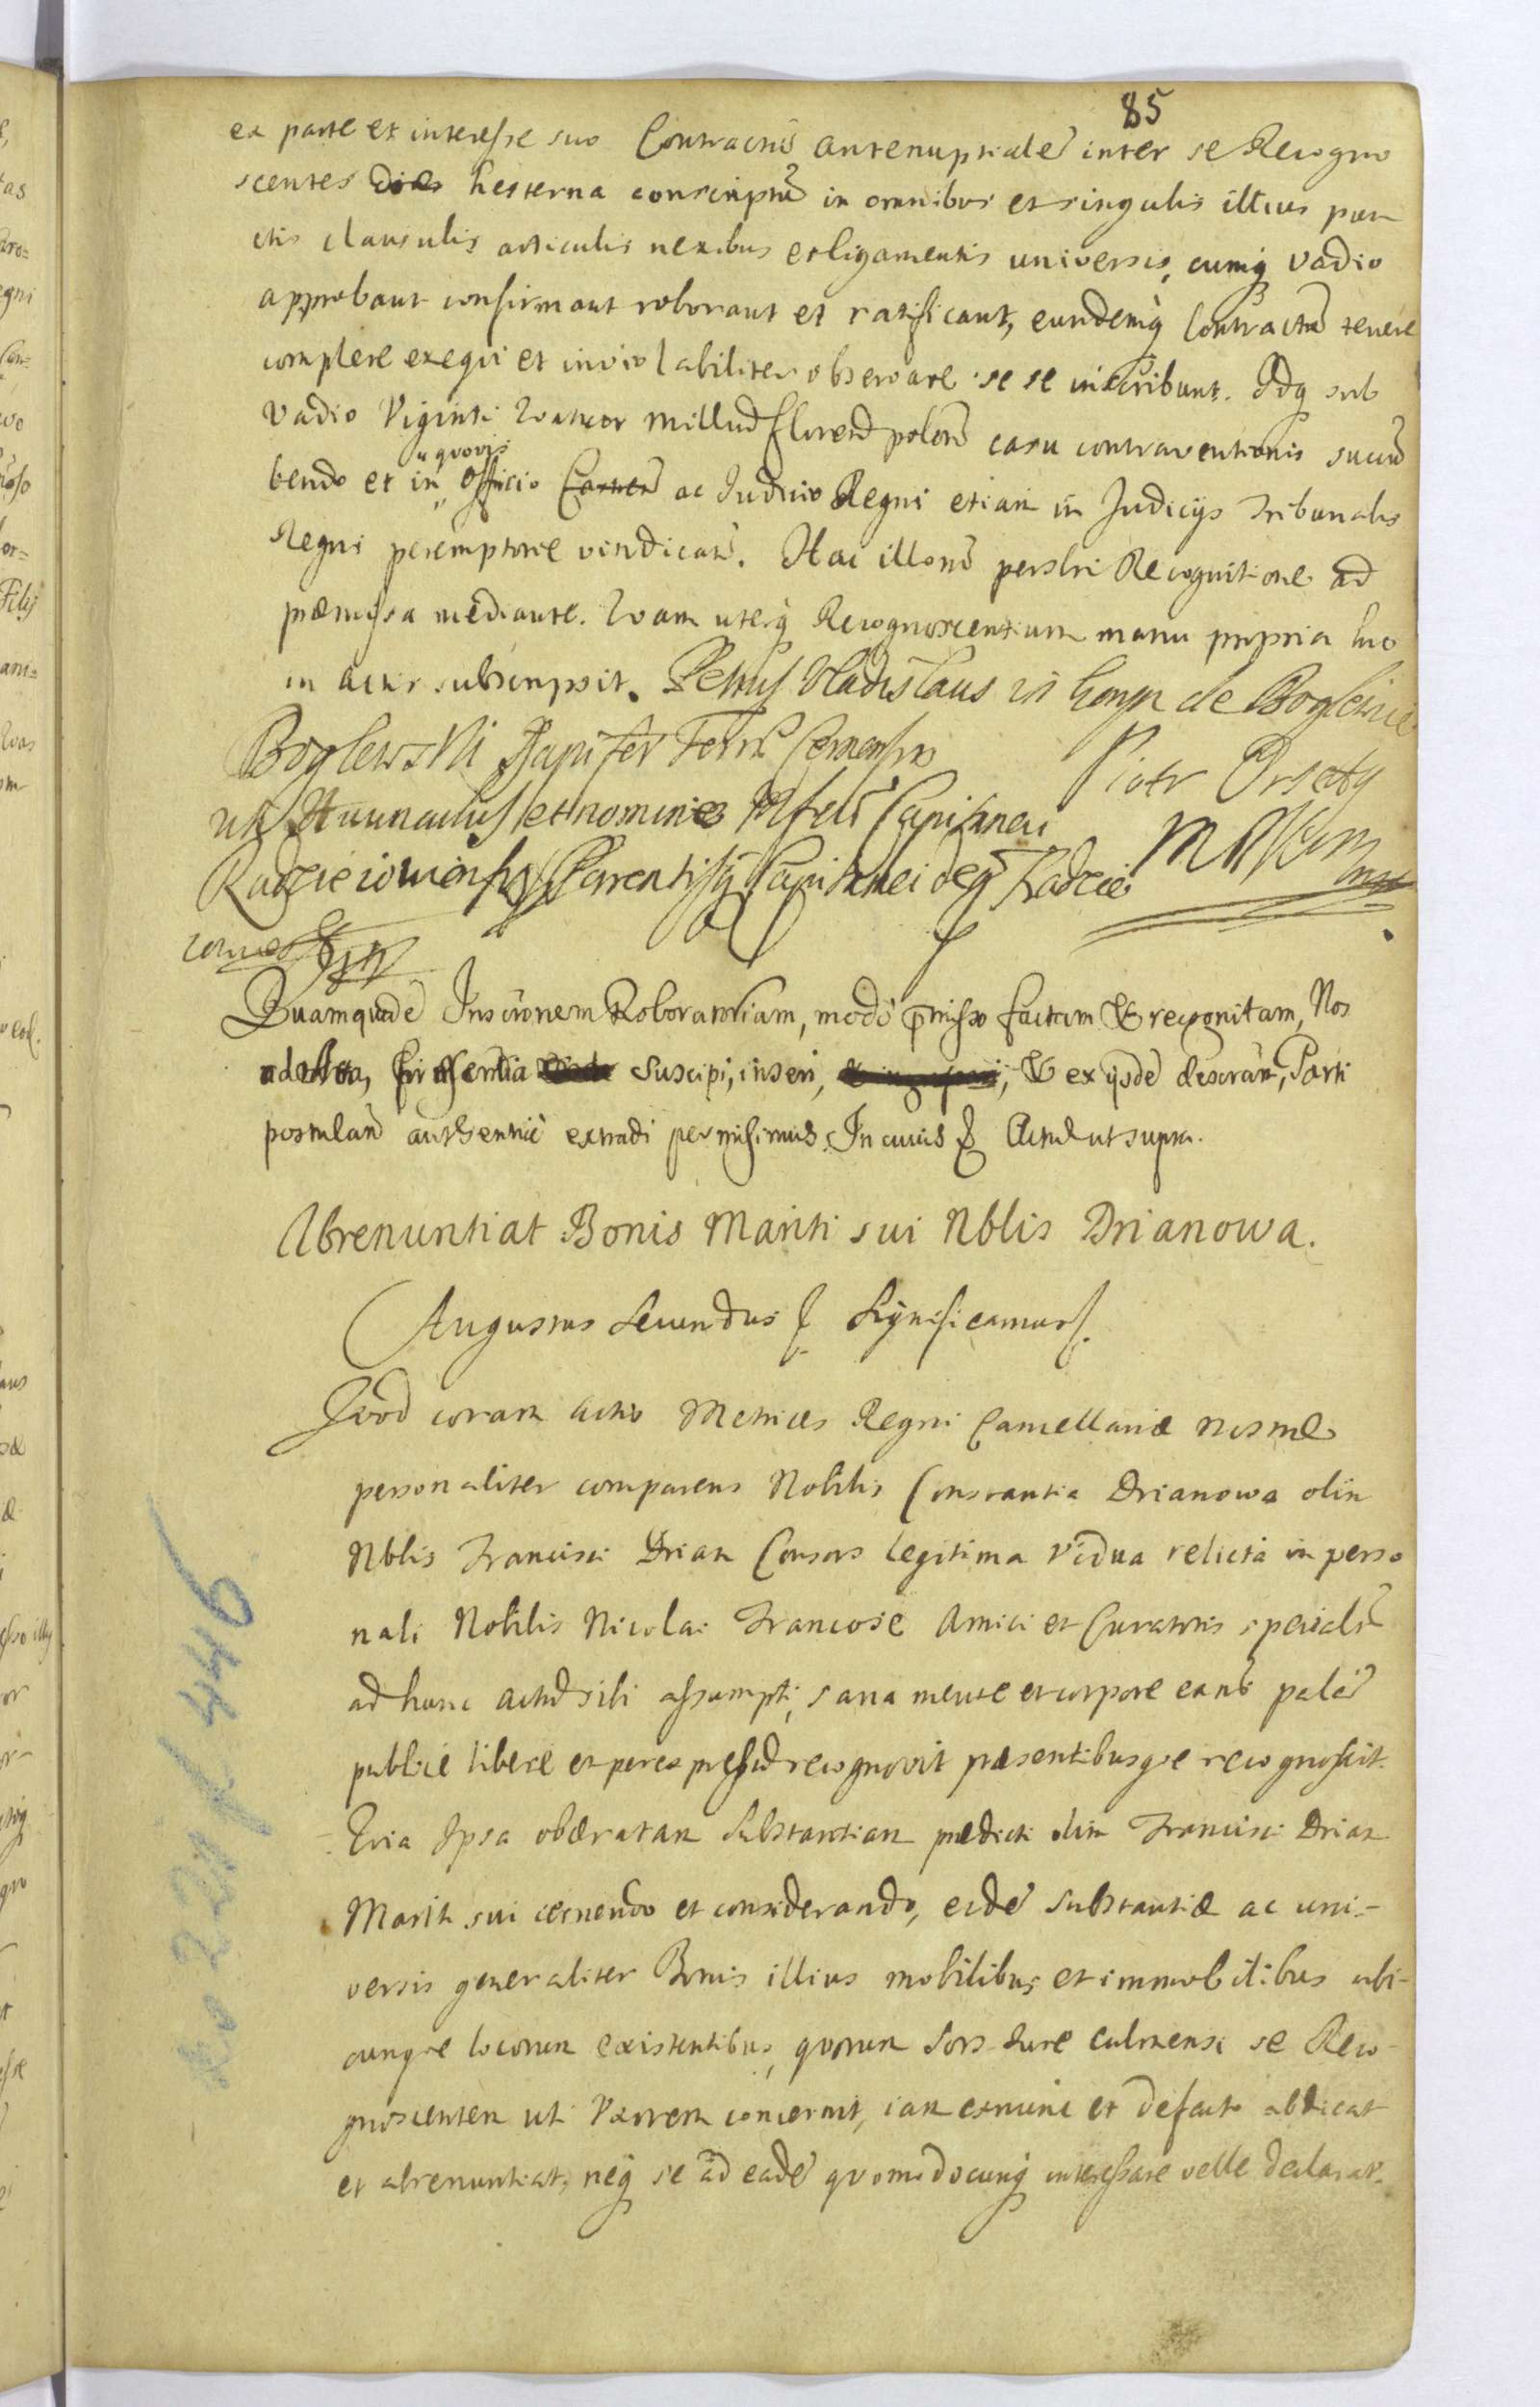 85
ex parte et interesse suo Contractũ antenuptialẽ inter se Recogno
scentes die hesterna conscriptũ in omnibus et singulis illius pun
ctis clausulis articulis nexibus et ligamentis universis, cumq vadio
approbant confirmant roborant et ratificant, eundemq Contractũ tenere
complere exequi et inviolabiliter observare se se inscribunt. Idq sub
vadio Viginti Quatuor Millium Florenõ polonõ casu contraventionis sucum
bendo et in quovis Officio Castren ac Judicio Regni etiam in Judicijs Tribunalis
Regni peremptorie vindicari. Hac illorũ perslri Recognitione ad
præmissa mediante. Quam uterq Recognoscentium manu propria hic
in actis subscripsit. Petrus Vladislaus
Boglewski Dapifer Terrę Cernensis
Piotr Orsetty
Quamquidẽ Inscrõnem Roboratoriam, modo pmisso factam & recognitam, Nos
ad Acta, præsentia suscipi, inseri, & ex ijsdẽ descrãm, Parti
postulanõ authenticẽ extradi permisimus. In cuius & Actum ut supra.
Abrenuntiat Bonis Mariti sui Nblis Drianowa.
Augustus Secundus & Significamus &
Quod coram actis Metrices Regni Cancellariæ nostræ
personaliter comparens Nobilis Constantia Drianowa olim
Nblis Francisci Drian Consors legitima Vidua relicta in perso
nali Nobilis Nicolai Francose Amici et Curatoris speciali
ad hunc actum sibi assumpti, sana mente et corpore exñs palã
publice libere et per expressum recognovit præsentibusque recognoscit.
Quia Ipsa obæratam Substantiam prædicti olim Francisci Drian
Mariti sui cernendo et considerando, eidẽ substantiæ ac uni-
versis generaliter Bonis illius mobilibus et immobilibus ubi-
cunque locorum existentibus, quorum sors Jure Culmensi se Reco-
gnoscentem uti Uxorem concernit, iam exnunc et defacto abdicat
et abrenuntiat, neq se ad eadẽ quomodocunq interessare velle declarat.